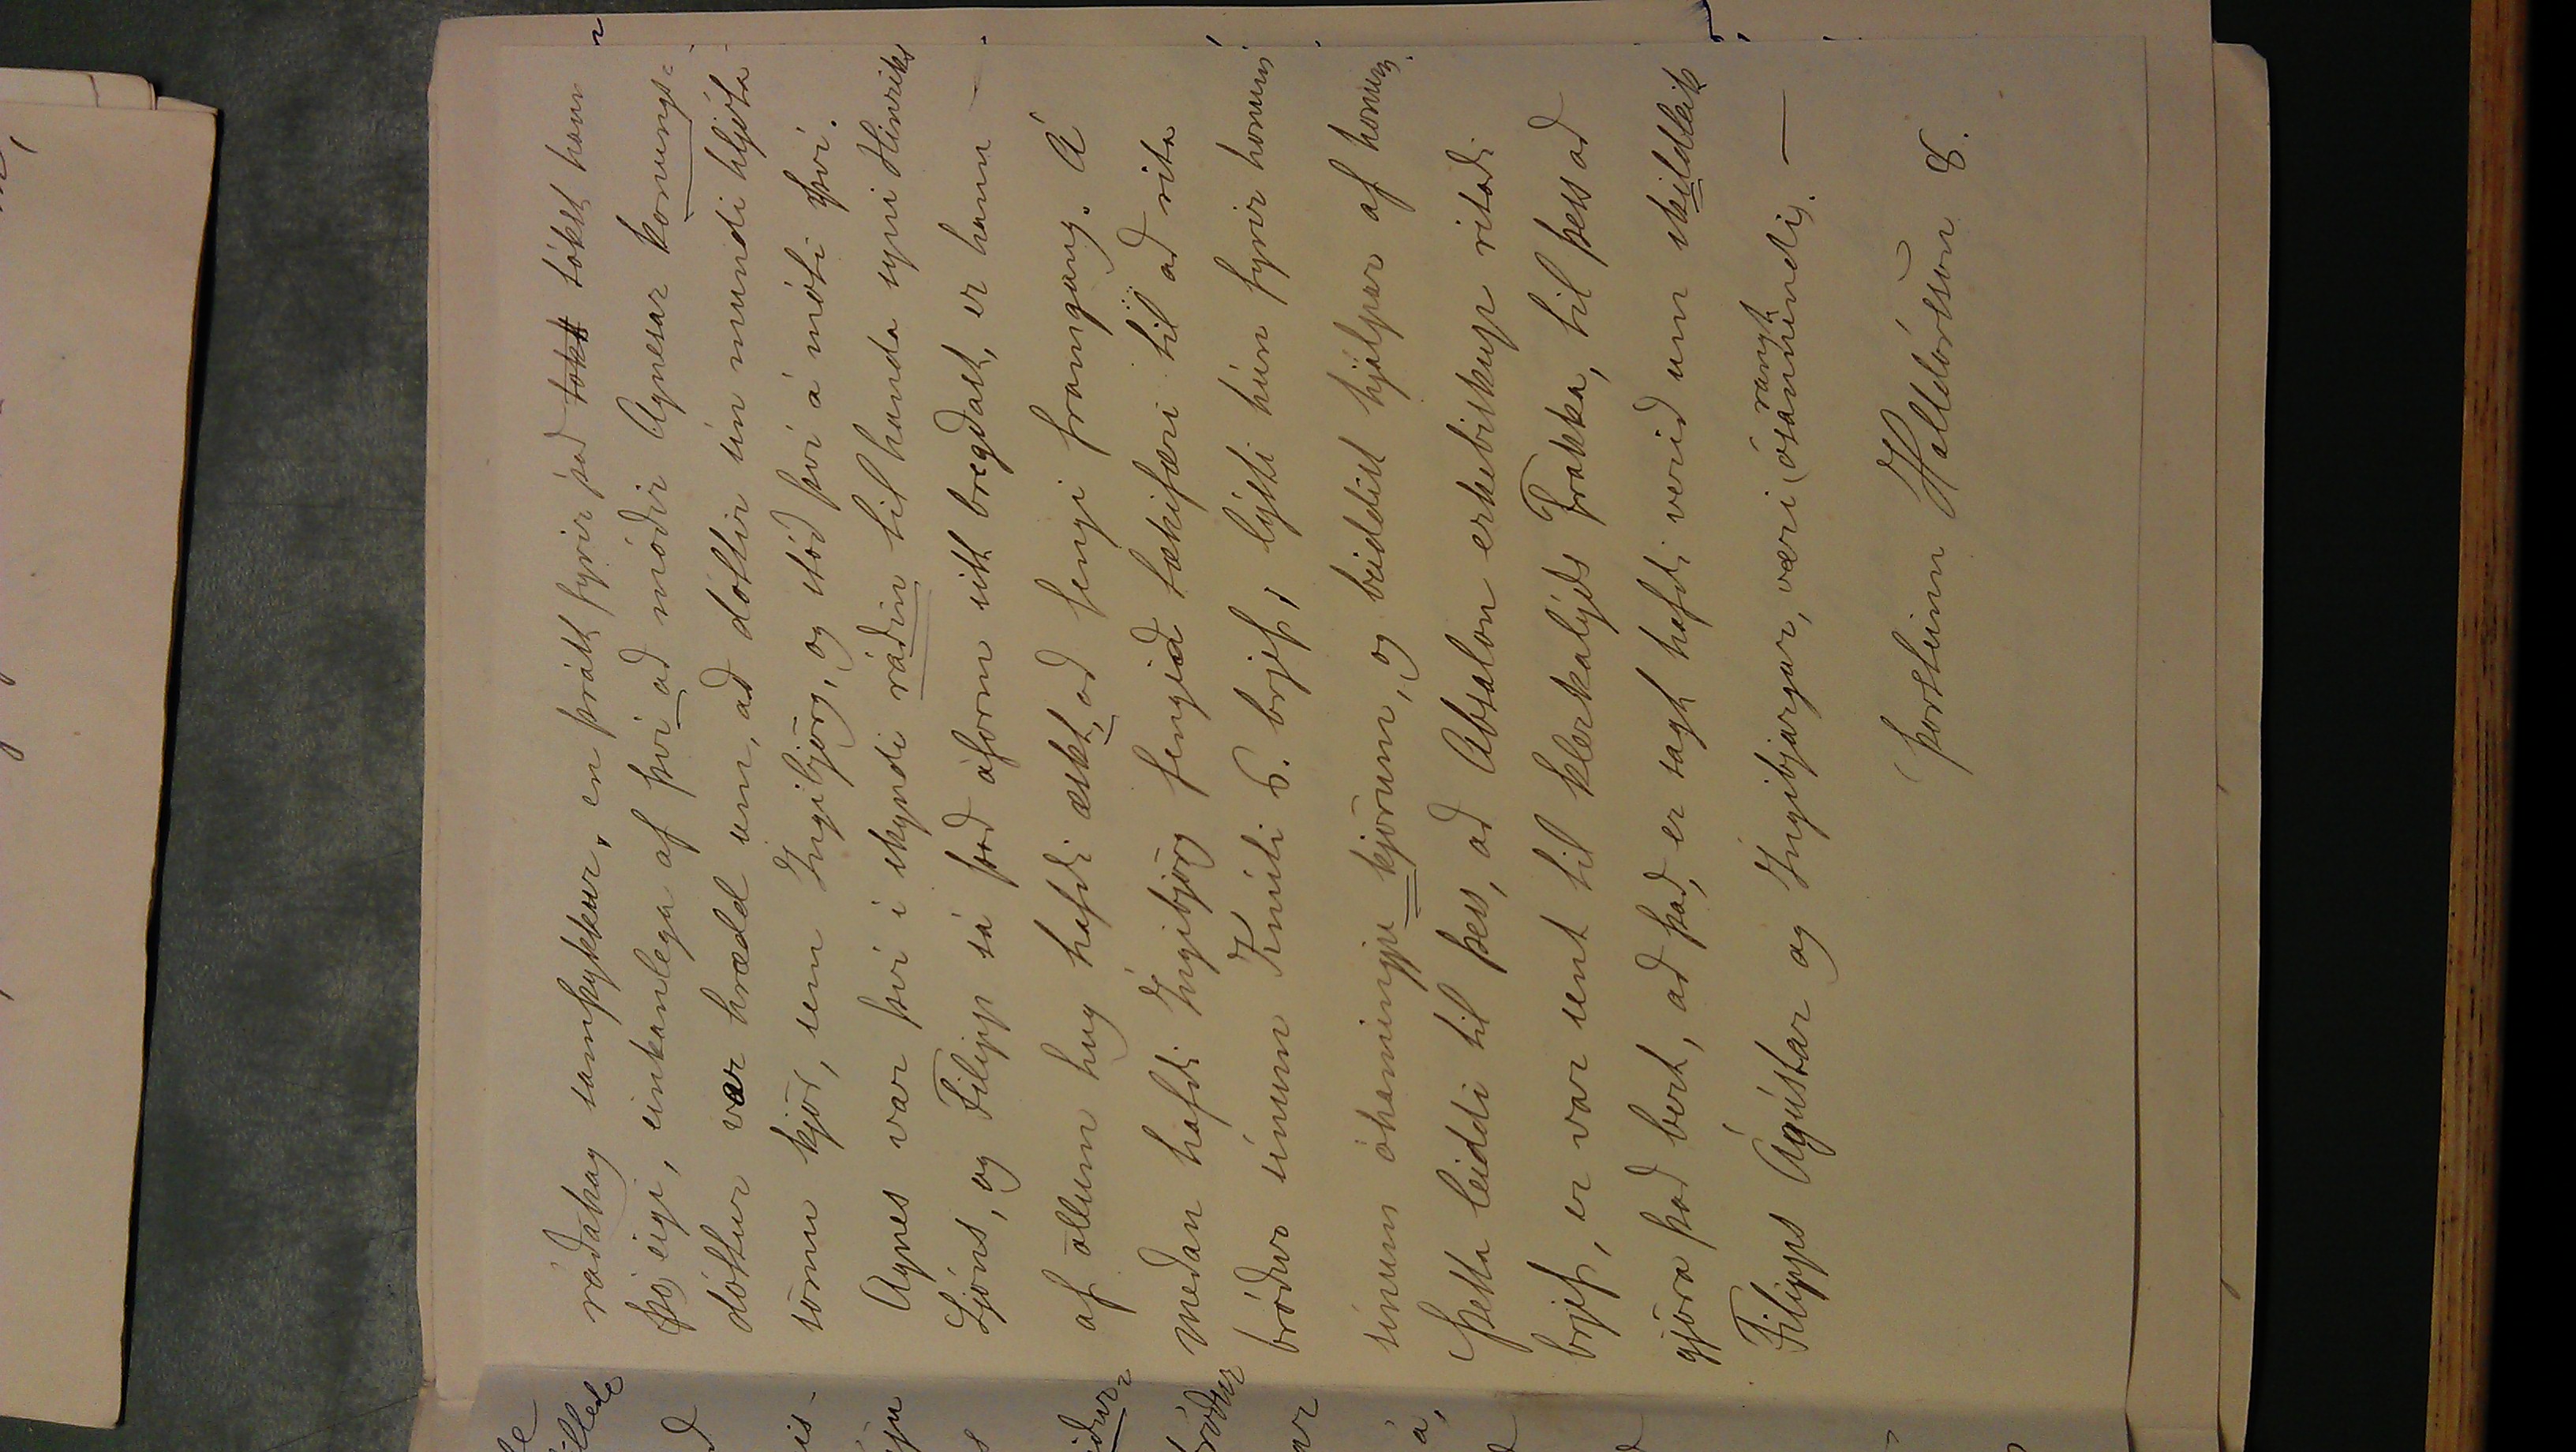 ráðahag samþykkur, en þrátt fyrir það tókst tókst hann
þó eigi, einkanlega af því að móðir Agnesar konungs-
dóttur var hrædd um, að dóttir sín mundi hljóta
sömu kjör, sem Ingibjörg, og stóð því á móti því.
Agnes var því í skyndi ráðin til handa syni Hinriks
Ljóns, og Filipp sá það áform sitt bregðast, er hann
af öllum hug hafði æskt, að fengi framgang. Á
meðan hafði Ingibjörg fengið tækifæri til að rita
bróður sínum Knúti 6. brjef, lýsti hún fyrir honum
sínum óhamingju kjörum, og beiddist hjálpar af honum.
Þetta leiddi til þess, að Absalon erkibiskup ritaði
brjef, er var sent til klerkalýðs Frakka, til þess að
gjöra það bert, að það, er sagt hafði verið um skildleik
rangt
Filipps Ágústar og Ingibjargar, væri (ósannindi). —
Þorsteinn Halldórsson 8.